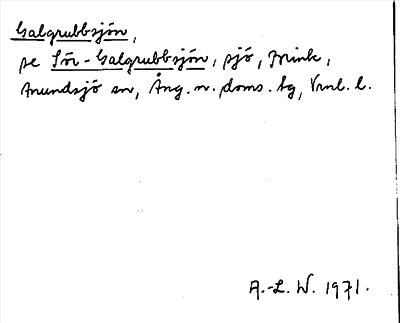 Galgrubbsjön,
se Sör-Galgrubbsjön, sjö, Frink,
Anundsjö sn, Ång. n. doms. tg, Vrnl. l.
A.-L. W. 1971.